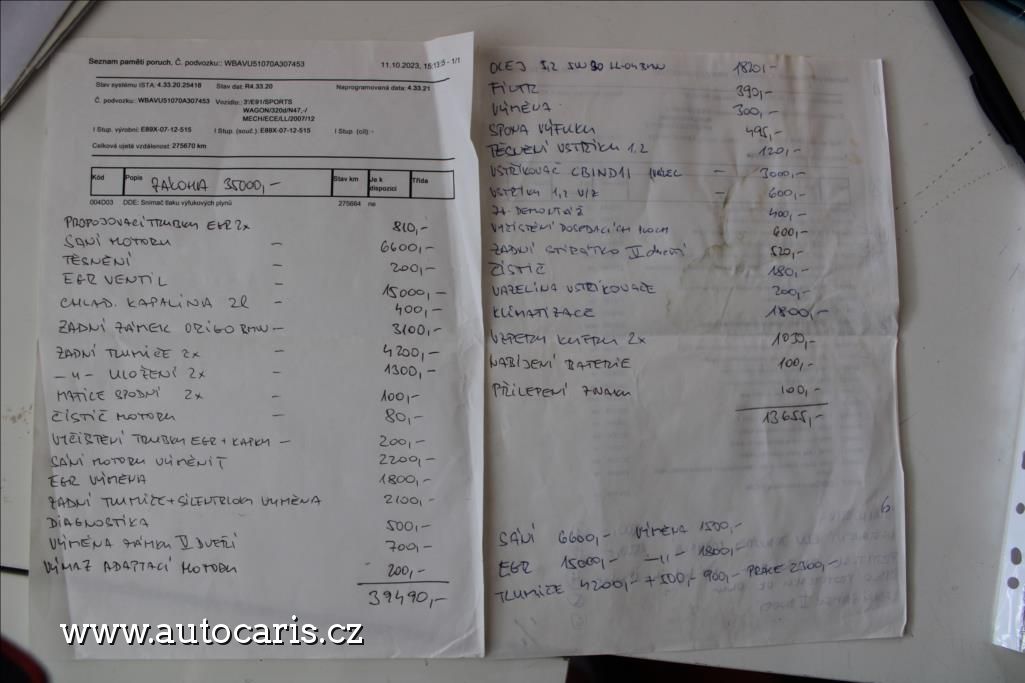 Seznam pamětí poruch, Č. podvozku:: WBAVU51070A307453 11.10.2023, 15:13:5 - 1/1
Stav systému ISTA: 4.33.20.25418 Stav dat: R4.33.20 Naprogramovaná data: 4.33.21
Č. podvozku:: WBAVU51070A307453 Vozidlo:: 3'/E91/SPORTS
WAGON/320d/N47,-/
MECH/ECE/LL/2007/12
I Stup. výrobní:: E89X-07-12-515 I Stup. (souč.):: E89X-07-12-515 I Stup. (cíl):: -
Celková ujetá vzdálenost: 275670 km
Kód Popis ZÁLOHA 35000,- Stav km Je k dispozici Třída
004D03 DDE: Snímač tlaku výfukových plynů 275664 ne
PROPOJOVACÍ TRUBKY EGR 2x 810,-
SÁNÍ MOTORU – 6600,-
TĚSNĚNÍ – 200,-
EGR VENTIL – 15000,-
CHLAD. KAPALINA 2l – 400,-
ZADNÍ ZÁMEK ORIGO BMW – 3100,-
ZADNÍ TLUMIČE 2x – 4200,-
–"– ULOŽENÍ 2x – 1300,-
MATICE SPODNÍ 2x – 100,-
ČISTIČ MOTORU – 80,-
VYČIŠTĚNÍ TRUBKY EGR + KAPKY – 200,-
SÁNÍ MOTORU VÝMĚNIT 2200,-
EGR VÝMĚNA 1800,-
ZADNÍ TLUMIČE + SILENTBLOKY VÝMĚNA 2100,-
DIAGNOSTIKA 500,-
VÝMĚNA ZÁMKU V DVEŘÍ 700,-
VÝMAZ ADAPTACÍ MOTORU 200,-
39490,-
OLEJ 5,2 5W30 LL-04 BMW 1820,-
FILTR 390,-
VÝMĚNA 300,-
SPONA VÝFUKU 495,-
TĚSNĚNÍ VSTŘIKU 1.2 120,-
VSTŘIKOVAČ CBIND1, – 3000,-
VSTŘIKU 1,2 V/Z – 600,-
DEMONTÁŽ 400,-
VYČIŠTĚNÍ DOSEDACÍCH PLOCH 600,-
ZADNÍ STÍRÁTKO 520,-
ČISTIČ 180,-
VAZELÍNA VSTŘIKOVAČE 200,-
KLIMATIZACE 1800,-
VZPĚRY KUFRU 2x 1030,-
NABÍJENÍ BATERIE 100,-
PŘILEPENÍ ZNAKU 100,-
13655,-
SÁNÍ 6600,- VÝMĚNA 1500,-
EGR 15000,- –"– 1800,-
TLUMIČE 4200,- + 500,- 900,- PRÁCE
www.autocaris.cz